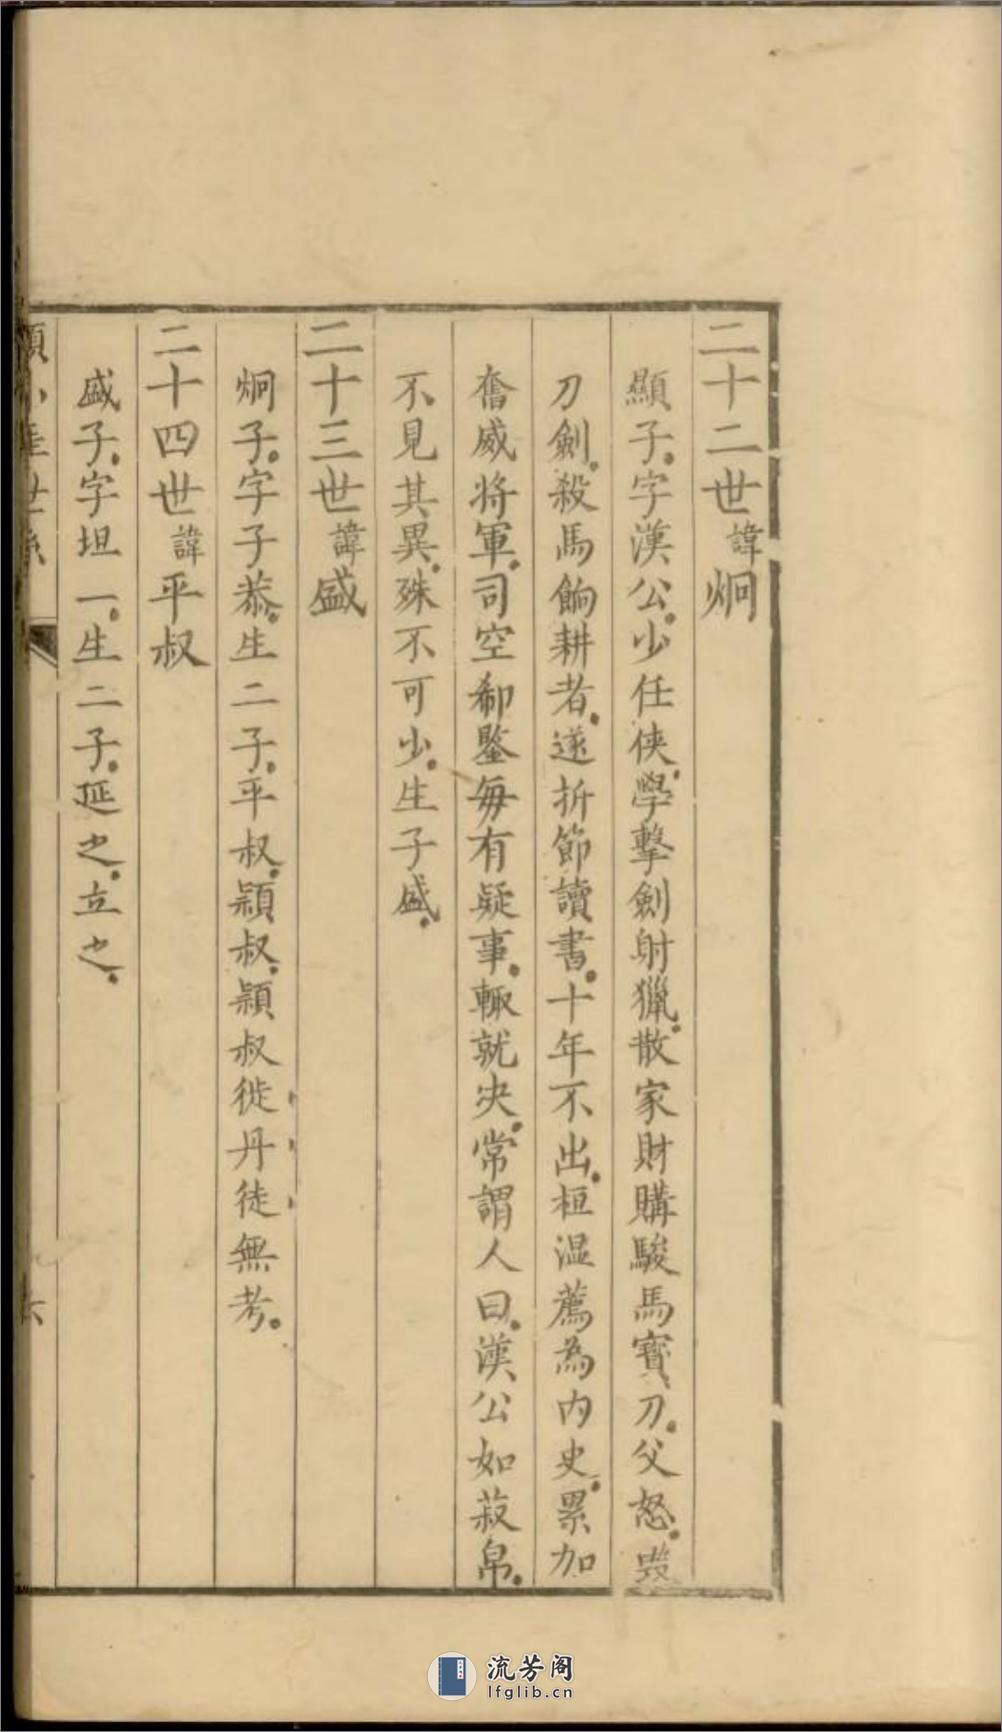 二十二世諱炯
顯子字漢公少任俠學擊劍射獵散家財購駿馬寶刀父怒毀
刀劍殺馬餉耕者遂折節讀書十年不出桓温薦為內史累加
奮威將軍司空郗鑒每有疑事輒就决常謂人曰漢公如菽帛
不見其異殊不可少生子盛
二十三世諱盛
炯子字子恭生二子平叔穎叔穎叔徙丹徒無考
二十四世諱平叔
盛子字坦一生二子延之立之
世系
六
流芳阁
lfglib.cn